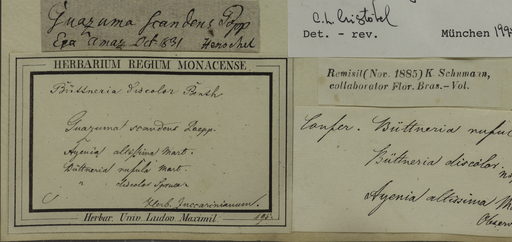 Guazuma scandens Pöpp
Ega Amaz Oct 831 Henschel
C. L. Cristóbal
Det. - rev. München 199
HERBARIUM REGIUM MONACENSE.
Büttneria discolor Benth
Guazuma scandens Poepp.
Ayenia altissima Mart.
Büttneria rufula Mart.
" discolor Spruce
Herb. Zuccarinianum.
Herbar. Univ. Ludov. Maximil.
Remisit (Nov. 1885) K. Schumann,
collaborator Flor. Bras.-Vol.
Confer. Büttneria ruful
Büttneria discolor.
Ayenia altissima M
Observ